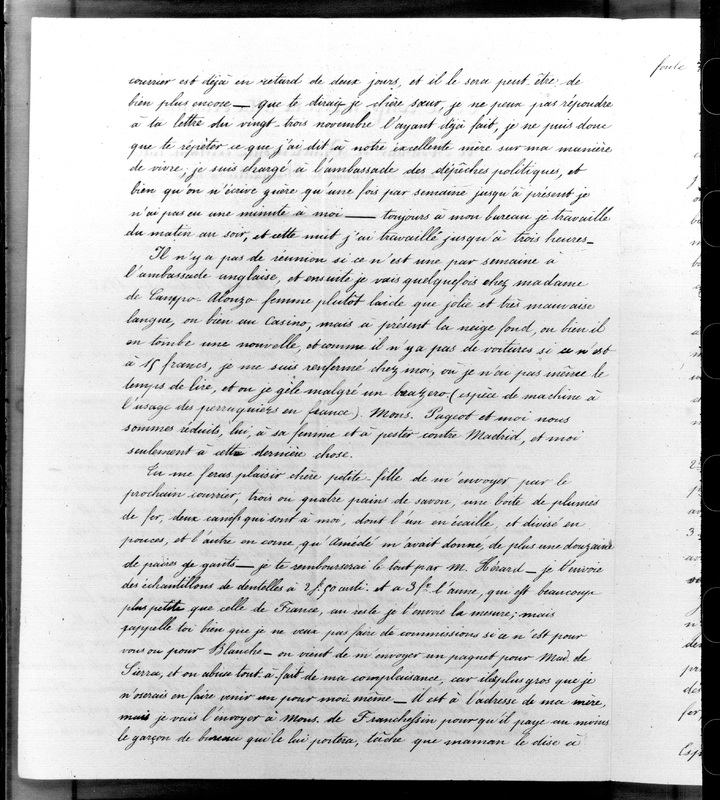 courrier est déjà en retard de deux jours, et il le sera peut être de
bien plus encore — que te dirai-je chère sœur, je ne peux pas répondre
à ta lettre du vingt-trois novembre l'ayant déjà fait, je ne puis donc
que te répéter ce que j'ai dit à notre excellente mère sur ma manière
de vivre, je suis chargé à l'ambassade des dépêches politiques, et
bien qu'on n'écrive guère qu'une fois par semaine jusqu'à présent je
n'ai pas eu une minute à moi — toujours à mon bureau je travaille
du matin au soir, et cette nuit j'ai travaillé jusqu'à trois heures —
Il n'y a pas de réunion si ce n'est une par semaine à
l'ambassade anglaise, et ensuite je vais quelquefois chez madame
de Campo-Alonzo femme plutôt laide que jolie et très mauvaise
langue, ou bien au Casino, mais à présent la neige fond, ou bien il
en tombe une nouvelle, et comme il n'y a pas de voitures si ce n'est
à 15 francs, je me suis renfermé chez moi, où je n'ai pas même le
temps de lire, et où je gèle malgré un brazero (espèce de machine à
l'usage des perruquiers en france). Mons. Pageot et moi nous
sommes réduits, lui, à sa femme et à pester contre Madrid, et moi
seulement à cette dernière chose.
Tu me feras plaisir chère petite fille de m'envoyer par le
prochain courrier, trois ou quatre pains de savon, une boîte de plumes
de fer, deux canifs qui sont à moi, dont l'un en écaille, et divisé en
pouces, et l'autre en corne, qu'Amédé m'avait donné, de plus une douzaine
de paires de gants — je te rembourserai le tout par M. Hérard — je t'envoie
des échantillons de dentelles à 2 f. 50 cent. et à 3 fr. l'aune, qui est beaucoup
plus petite que celle de France, au reste je t'envoie la mesure; mais
rappelle toi bien que je ne veux pas faire de commissions si ce n'est pour
vous ou pour Blanche — on vient de m'envoyer un paquet pour Mad. de
Sierra, et on abuse tout-à-fait de ma complaisance, car il est plus gros que je
n'oserais en faire venir un pour moi même — il est à l'adresse de ma mère,
mais je vais l'envoyer à Mons. de Franchessin pour qu'il paye au moins
le garçon de bureau qui le lui portera, tâche que maman le dise à